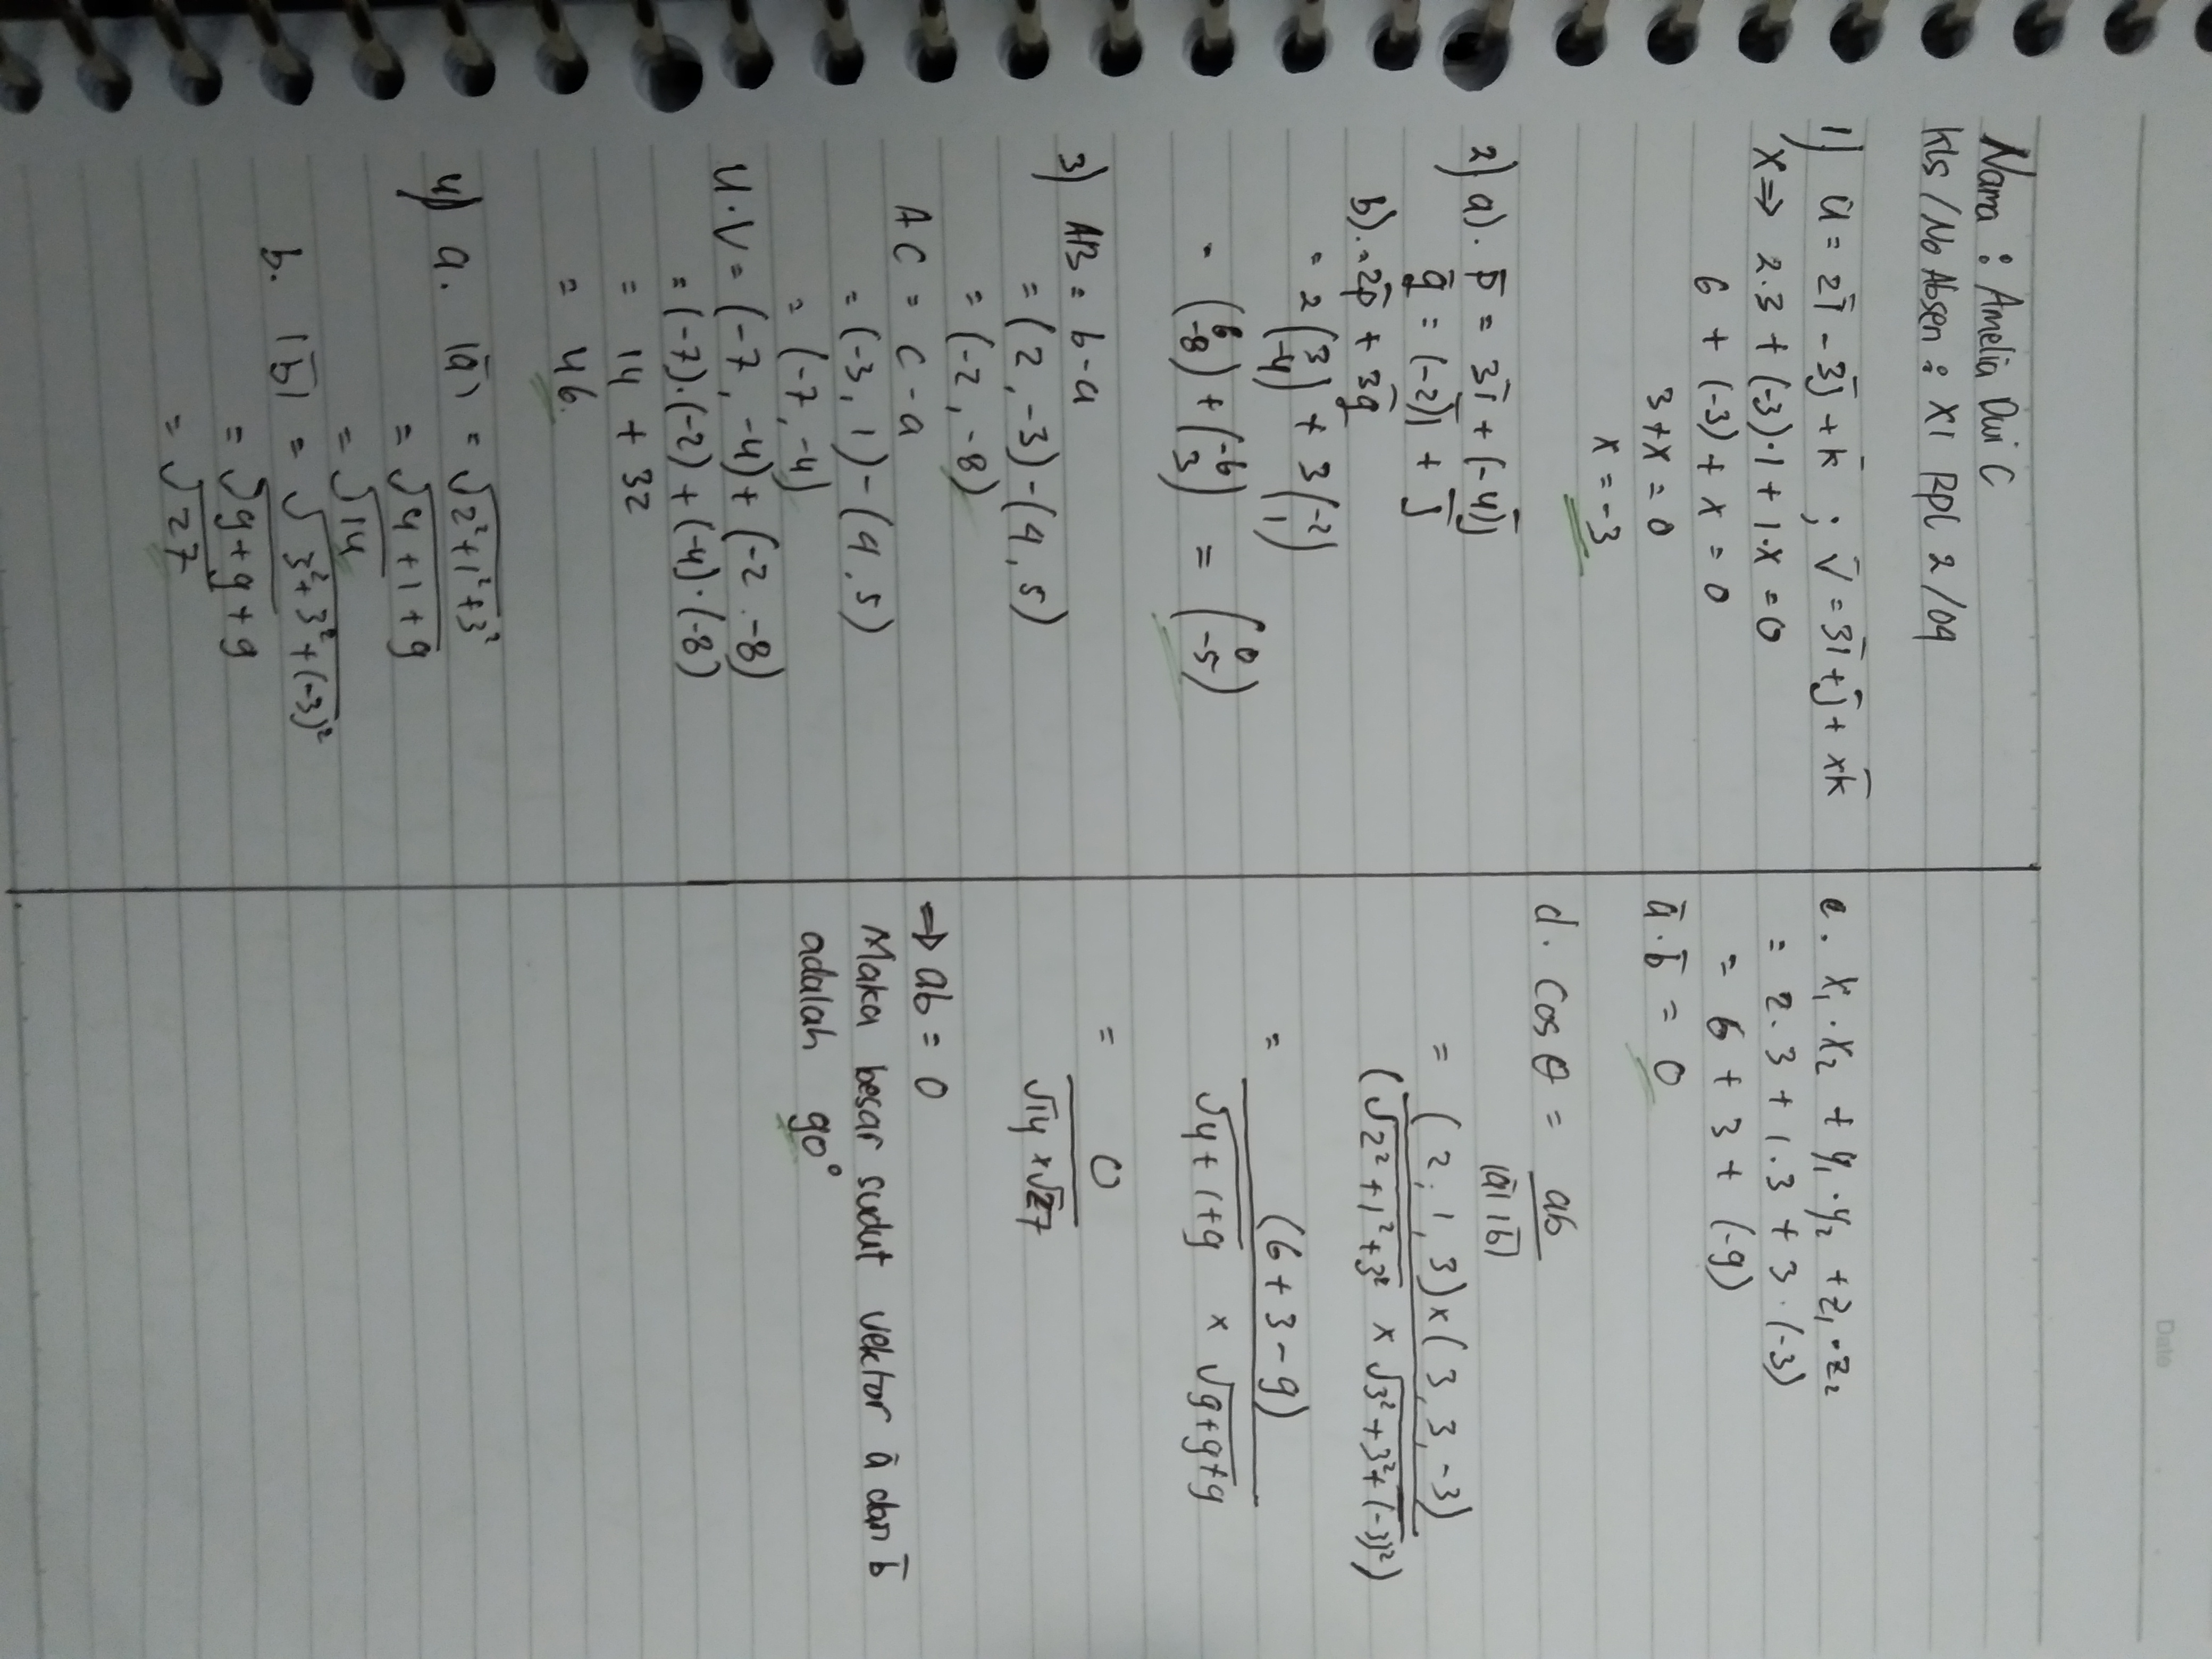 Nama : Amelia Dwi C
Kls/No Absen : XI RPL 2/09
1) ū = 2ī - 3j̄ + k̄ ; v̄ = 3ī + j̄ + xk̄
x ⇒ 2.3 + (-3).1 + 1.x = 0
6 + (-3) + x = 0
3+x = 0
x = -3
2) a). p̄ = 3ī + (-4)j̄
q̄ = (-2)ī + j̄
b). = 2p̄ + 3q̄
= 2 (3 -4) + 3 (-2 1)
= (6 -8) + (-6 3) = (0 -5)
3) AB = b-a
= (2, -3) - (4, 5)
= (-2, -8)
AC = c-a
= (-3, 1) - (4, 5)
= (-7, -4)
U.V = (-7, -4) + (-2. -8)
= (-7).(-2) + (-4).(-8)
= 14 + 32
= 46
4) a. |ā| = √2²+1²+3²
= √4+1+9
= √14
b. |b̄| = √3²+3²+(-3)²
= √9+9+9
= √27
c. x₁.x₂ + y₁.y₂ + z₁.z₂
= 2.3 + 1.3 + 3.(-3)
= 6 + 3 + (-9)
ā.b̄ = 0
d. Cos θ = ab / |ā||b̄|
= (2, 1, 3) x (3, 3, -3) / (√2²+1²+3² x √3²+3²+(-3)²)
= (6+3-9) / √4+1+9 x √9+9+9
= 0 / √14 x √27
⇒ ab = 0
Maka besar sudut vektor ā dan b̄
adalah 90°
Date